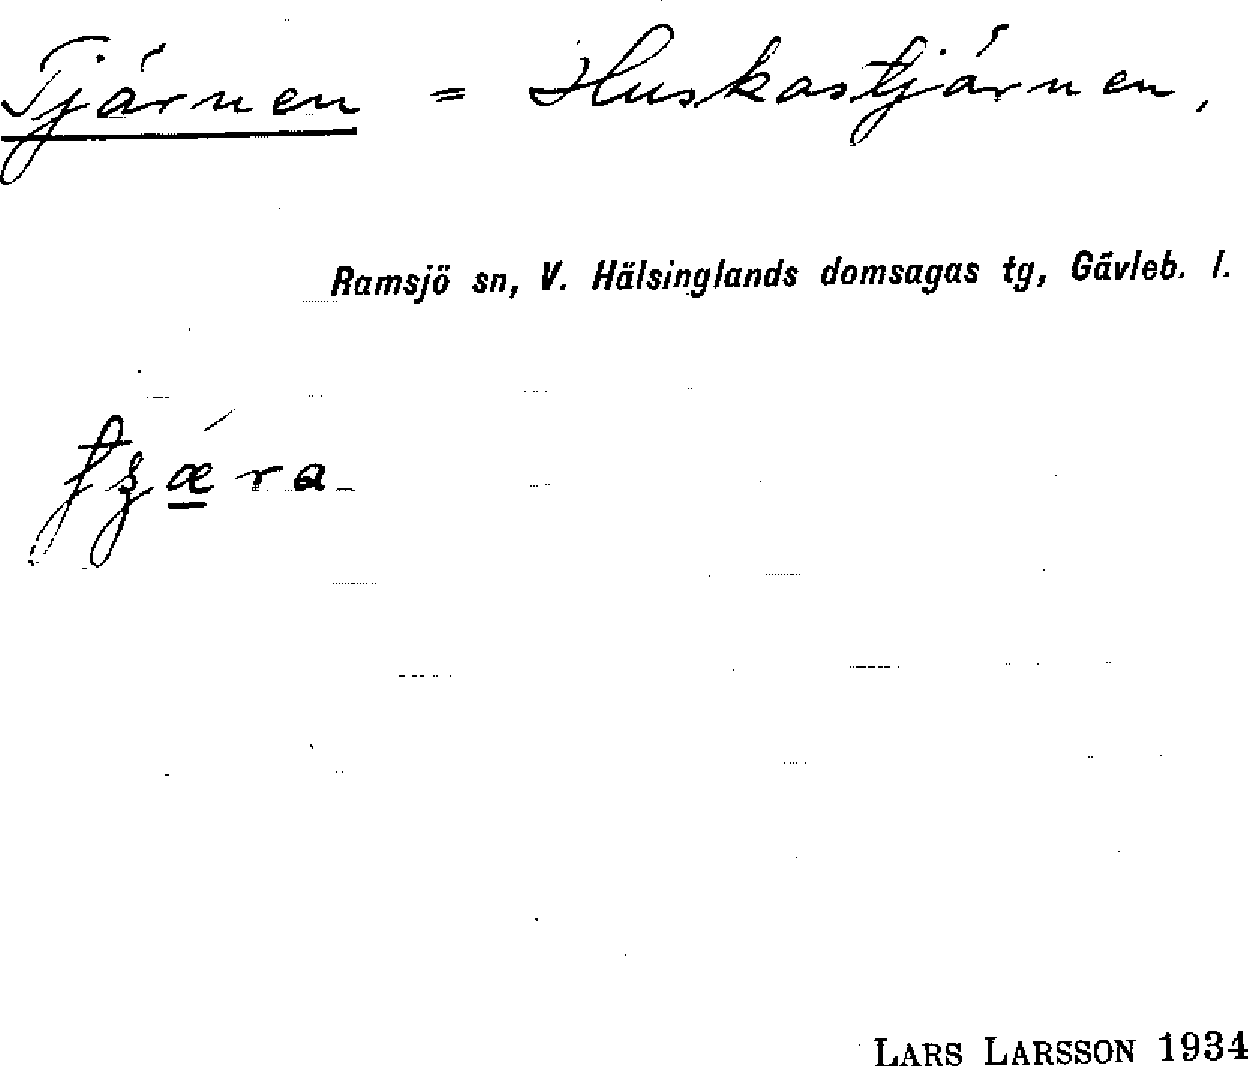 Tjärnen = Huskastjärnen,
Ramsjö sn, V. Hälsinglands domsagas tg, Gävleb. l.
LARS LARSSON 1934